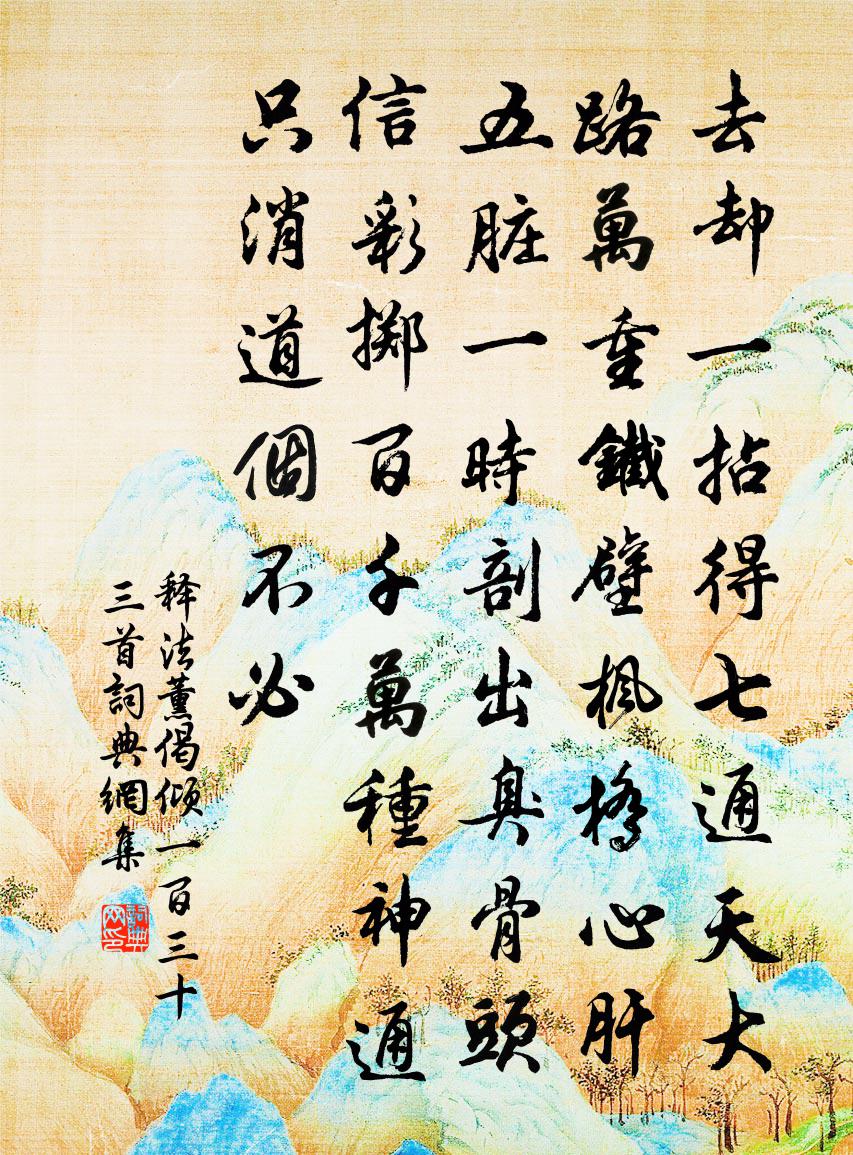 去却一拈得七通天大
路萬重鐵壁楓橋心肝
五脏一時剖出臭骨頭
信彩擲百千萬種神通
只消道個不必
释法薰偈傾一百三十
三首詞典網集
詞典网印